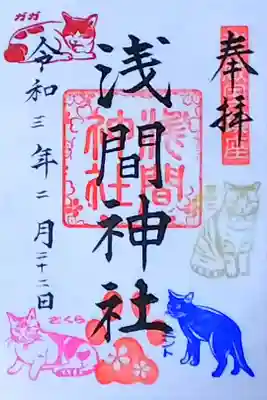 奉拝
浅間神社
浅間
神社
令和三年二月二十二日
ガガ
さくら